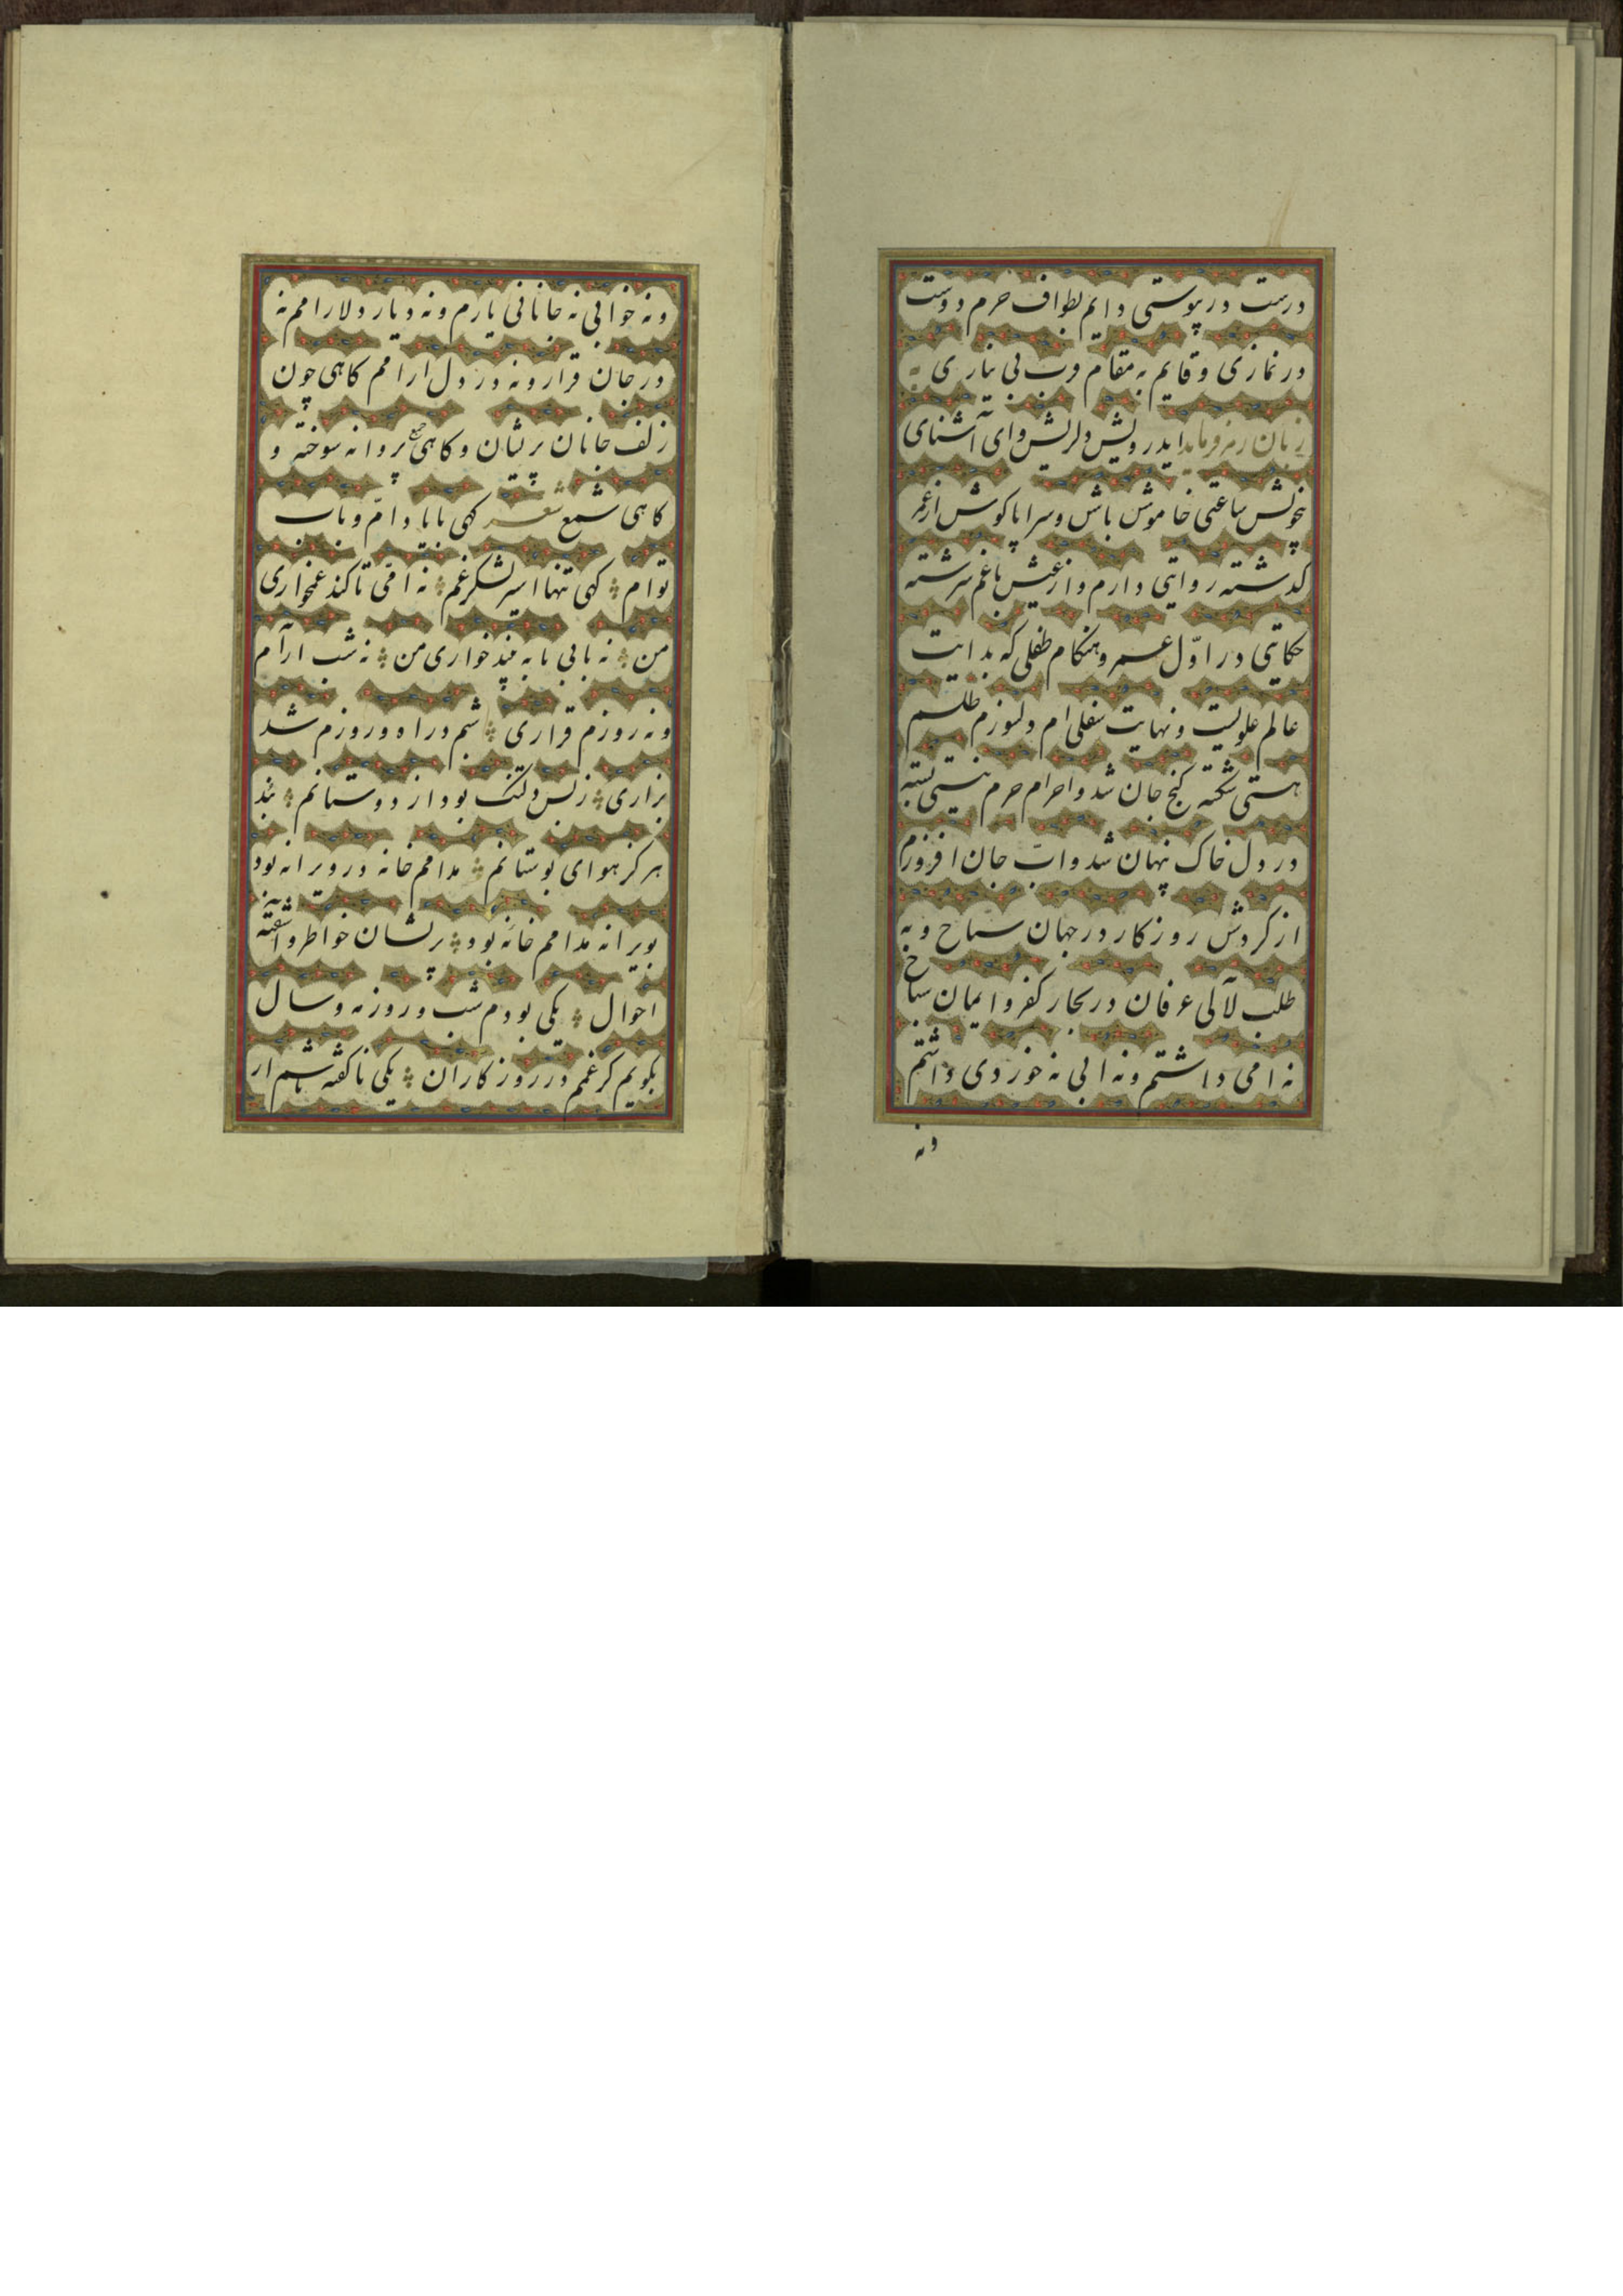 درست در پوستی دایم بطواف حرم دوست
در نمازی و قایم به مقام قرب بی نیازی به
زبان رمز فرماید ایدرویش دلریش و ای آشنای
بخویش ساعتی خاموش باش و سراپا کوش از عمر
کدشته روایتی دارم و از عیش با غم سرشته
حکایتی در اوّل عمر و هنکام طفلی که بدایت
عالم علویست و نهایت سفلی ام دلسوزم طلسم
هستی شکسته کنج جان شد و احرام حرم نیستی بسته
در دل خاک پنهان شد و اب جان افروزم
از کردش روزکار در جهان سیّاح و به
طلب لآلی عرفان در بحار کفر و ایمان سباح
نه امی داشتم و نه ابی نه خوردی داشتم
ونه
ونه خوابی نه جانانی یارم و نه دیار دلارامم نه
در جان قرار و نه در دل ارامم کاهی چون
زلف جانان پریشان و کاهی پروانه سوخته و
کاهی شمع شعر کهی بابا دامّ و باب
توام کهی تنها اسیر لشکر غم نه امّی تا کند غمخواری
من نه بابی تا به خواری من نه شب ارآم
ونه روزم قراری شبم در اه و روزم شد
بزاری ز بس دلتنک بود از دوستانم نبد
هرکز هوای بوستانم مدامم خانه در ویرانه بود
بویرانه مدامم خانه بود پریشان خواطر و آشفته
احوال یکی بودم شب و روز و مه و سال
بکویم کر غمم در روزکاران یکی ناکفته باشم از